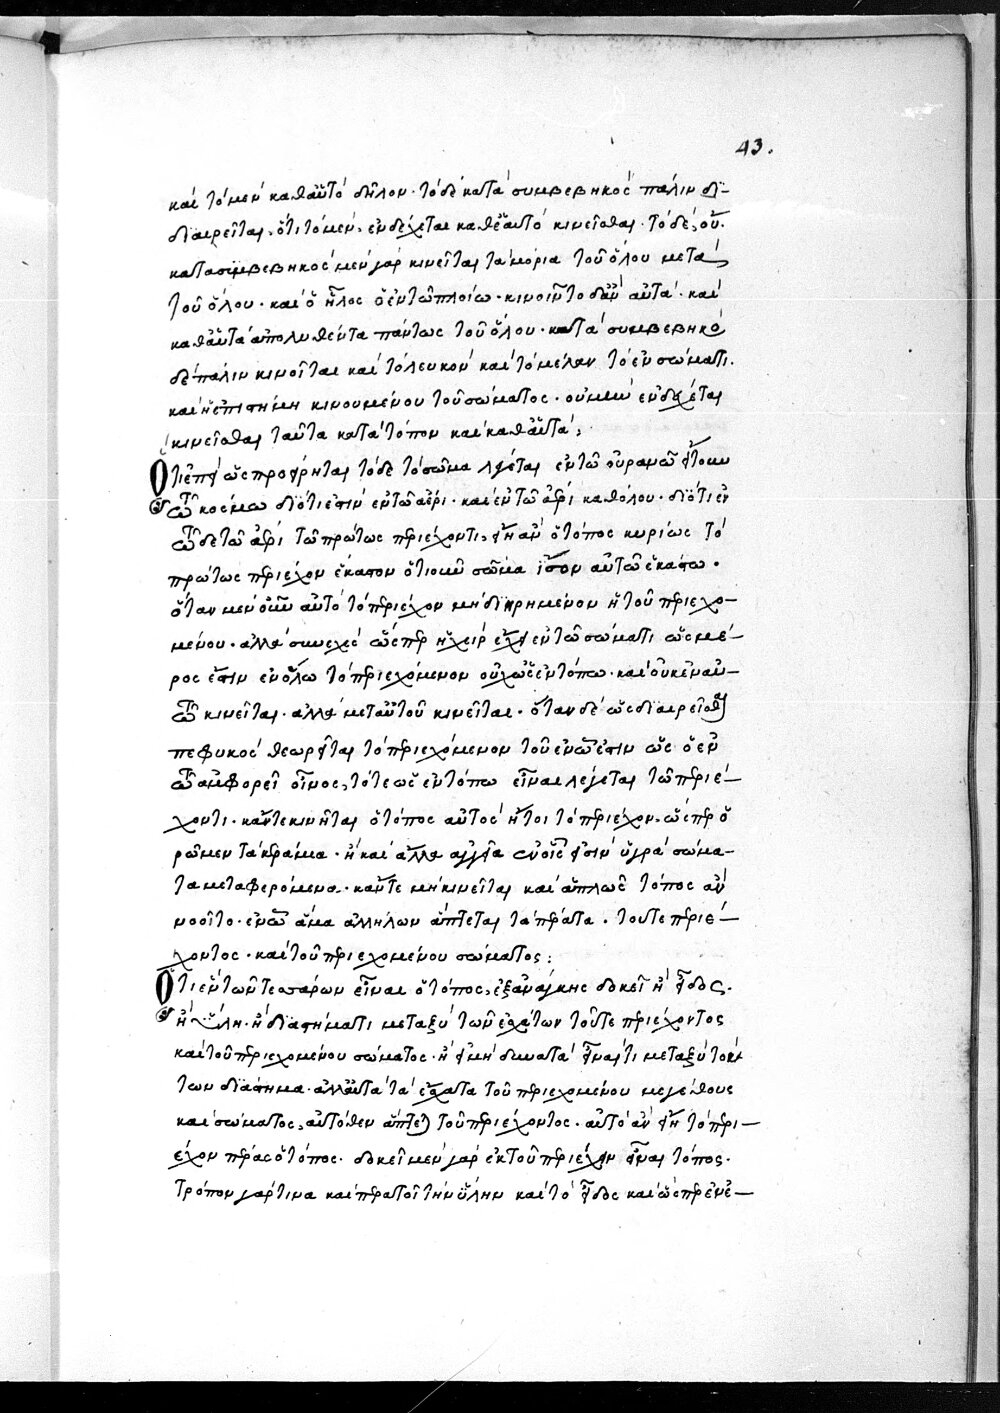 43.
καὶ τὸ μὲν καθ' αὑτὸ δῆλον· τὸ δὲ κατὰ συμβεβηκὸς πάλιν δι-
διαιρεῖται, ὅτι τὸ μὲν, ἐνδέχεται καθ' ἑαυτὸ κινεῖσθαι· τὸ δὲ, οὔ.
κατασυμβεβηκὸς μὲν γὰρ κινεῖται τὰ μόρια τοῦ ὅλου μετὰ
τοῦ ὅλου· καὶ ὁ ἧλος ὁ ἐν τῷ πλοίῳ· κινοῖντο δ' ἂν αὐτὰ· καὶ
καθ' αὑτὰ ἀπολυθέντα πάντως τοῦ ὅλου· κατὰ συμβεβηκὸ
δὲ πάλιν κινεῖται καὶ τὸ λευκὸν καὶ τὸ μέλαν τὸ ἐν σώματι.
καὶ ἡ ἐπιστήμη κινουμένου τοῦ σώματος· οὐ μὴν ἐνδέχεται
κινεῖσθαι ταῦτα κατὰ τόπον καὶ καθ' αὑτά:
Ὅτι ἐπεὶ ὡς προείρηται τόδε τὸ σῶμα λέγεται ἐν τῷ οὐρανῷ ἤτοι ἐν
τῷ κόσμῳ διότι ἐστὶν ἐν τῷ ἀέρι· καὶ ἐν τῷ ἀέρι καθόλου· διότι ἐν
τῷδε τῷ ἀέρι τῷ πρώτως περιέχοντι, εἴη ἂν ὁ τόπος κυρίως τὸ
πρώτως περιέχον ἕκαστον ὁτιοῦν σῶμα ἴσον αὐτῷ ἑκάστῳ.
ὅταν μὲν οὖν αὐτὸ τὸ περιέχον μὴ διῃρημένον ᾖ τοῦ περιεχο-
μένου· ἀλλὰ συνεχὲς ὥσπερ ἡ χεὶρ ἔχει ἐν τῷ σώματι ὡς μέ-
ρος ἐστὶν ἐν ὅλῳ τὸ περιεχόμενον οὐχ ὡς ἐν τόπῳ· καὶ οὐκ ἐν αὐ-
τῷ κινεῖται· ἀλλὰ μετ' αὐτοῦ κινεῖται· ὅταν δὲ ὡς διαιρεῖσθαι
πεφυκὸς θεωρῆται τὸ περιεχόμενον τοῦ ἐν ᾧ ἐστιν ὡς ὁ ἐν
τῷ ἀμφορεῖ οἶνος, τότε ὡς ἐν τόπῳ εἶναι λέγεται τῷ περιέ-
χοντι· κἄν τε κινῆται ὁ τόπος αὐτὸς ἤτοι τὸ περιέχον, ὥσπερ ὁ
ρῶμεν τὰ κράμα· ἢ καὶ ἄλλα ἀγγεῖα ἐν οἷς εἰσὶν ὑγρὰ σώμα-
τα μεταφερόμενα· κἄν τε μὴ κινεῖται καὶ ἁπλῶς τόπος ἂν
νοοῖτο· ἐν ᾧ ἅμα ἀλλήλων ἅπτεται τὰ πέρατα· τοῦ τε περιέ-
χοντος· καὶ τοῦ περιεχομένου σώματος:
Ὅτι ἓν τῶν τεσσάρων εἶναι ὁ τόπος, ἐξ ἀνάγκης δοκεῖ ἢ εἶδος.
ἢ ὕλη· ἢ διαστήματι μεταξὺ τῶν ἐσχάτων τοῦ τε περιέχοντος
καὶ τοῦ περιεχομένου σώματος· ἢ εἰ μὴ δυνατὰ εἶναί τι μεταξὺ τού
των διάστημα· ἀλλ' αὐτὰ τὰ ἔσχατα τοῦ περιεχομένου μεγέθους
καὶ σώματος, αὐτόθεν ἅπτεται τοῦ περιέχοντος· αὐτὸ ἂν εἴη τὸ περι-
έχον πέρας ὁ τόπος· δοκεῖ μὲν γὰρ ἐκ τοῦ περιέχειν εἶναι τόπος.
τρόπον γάρ τινα καὶ περατοῖ τὴν ὕλην καὶ τὸ εἶδος καὶ ὥσπερ ἐνέ-